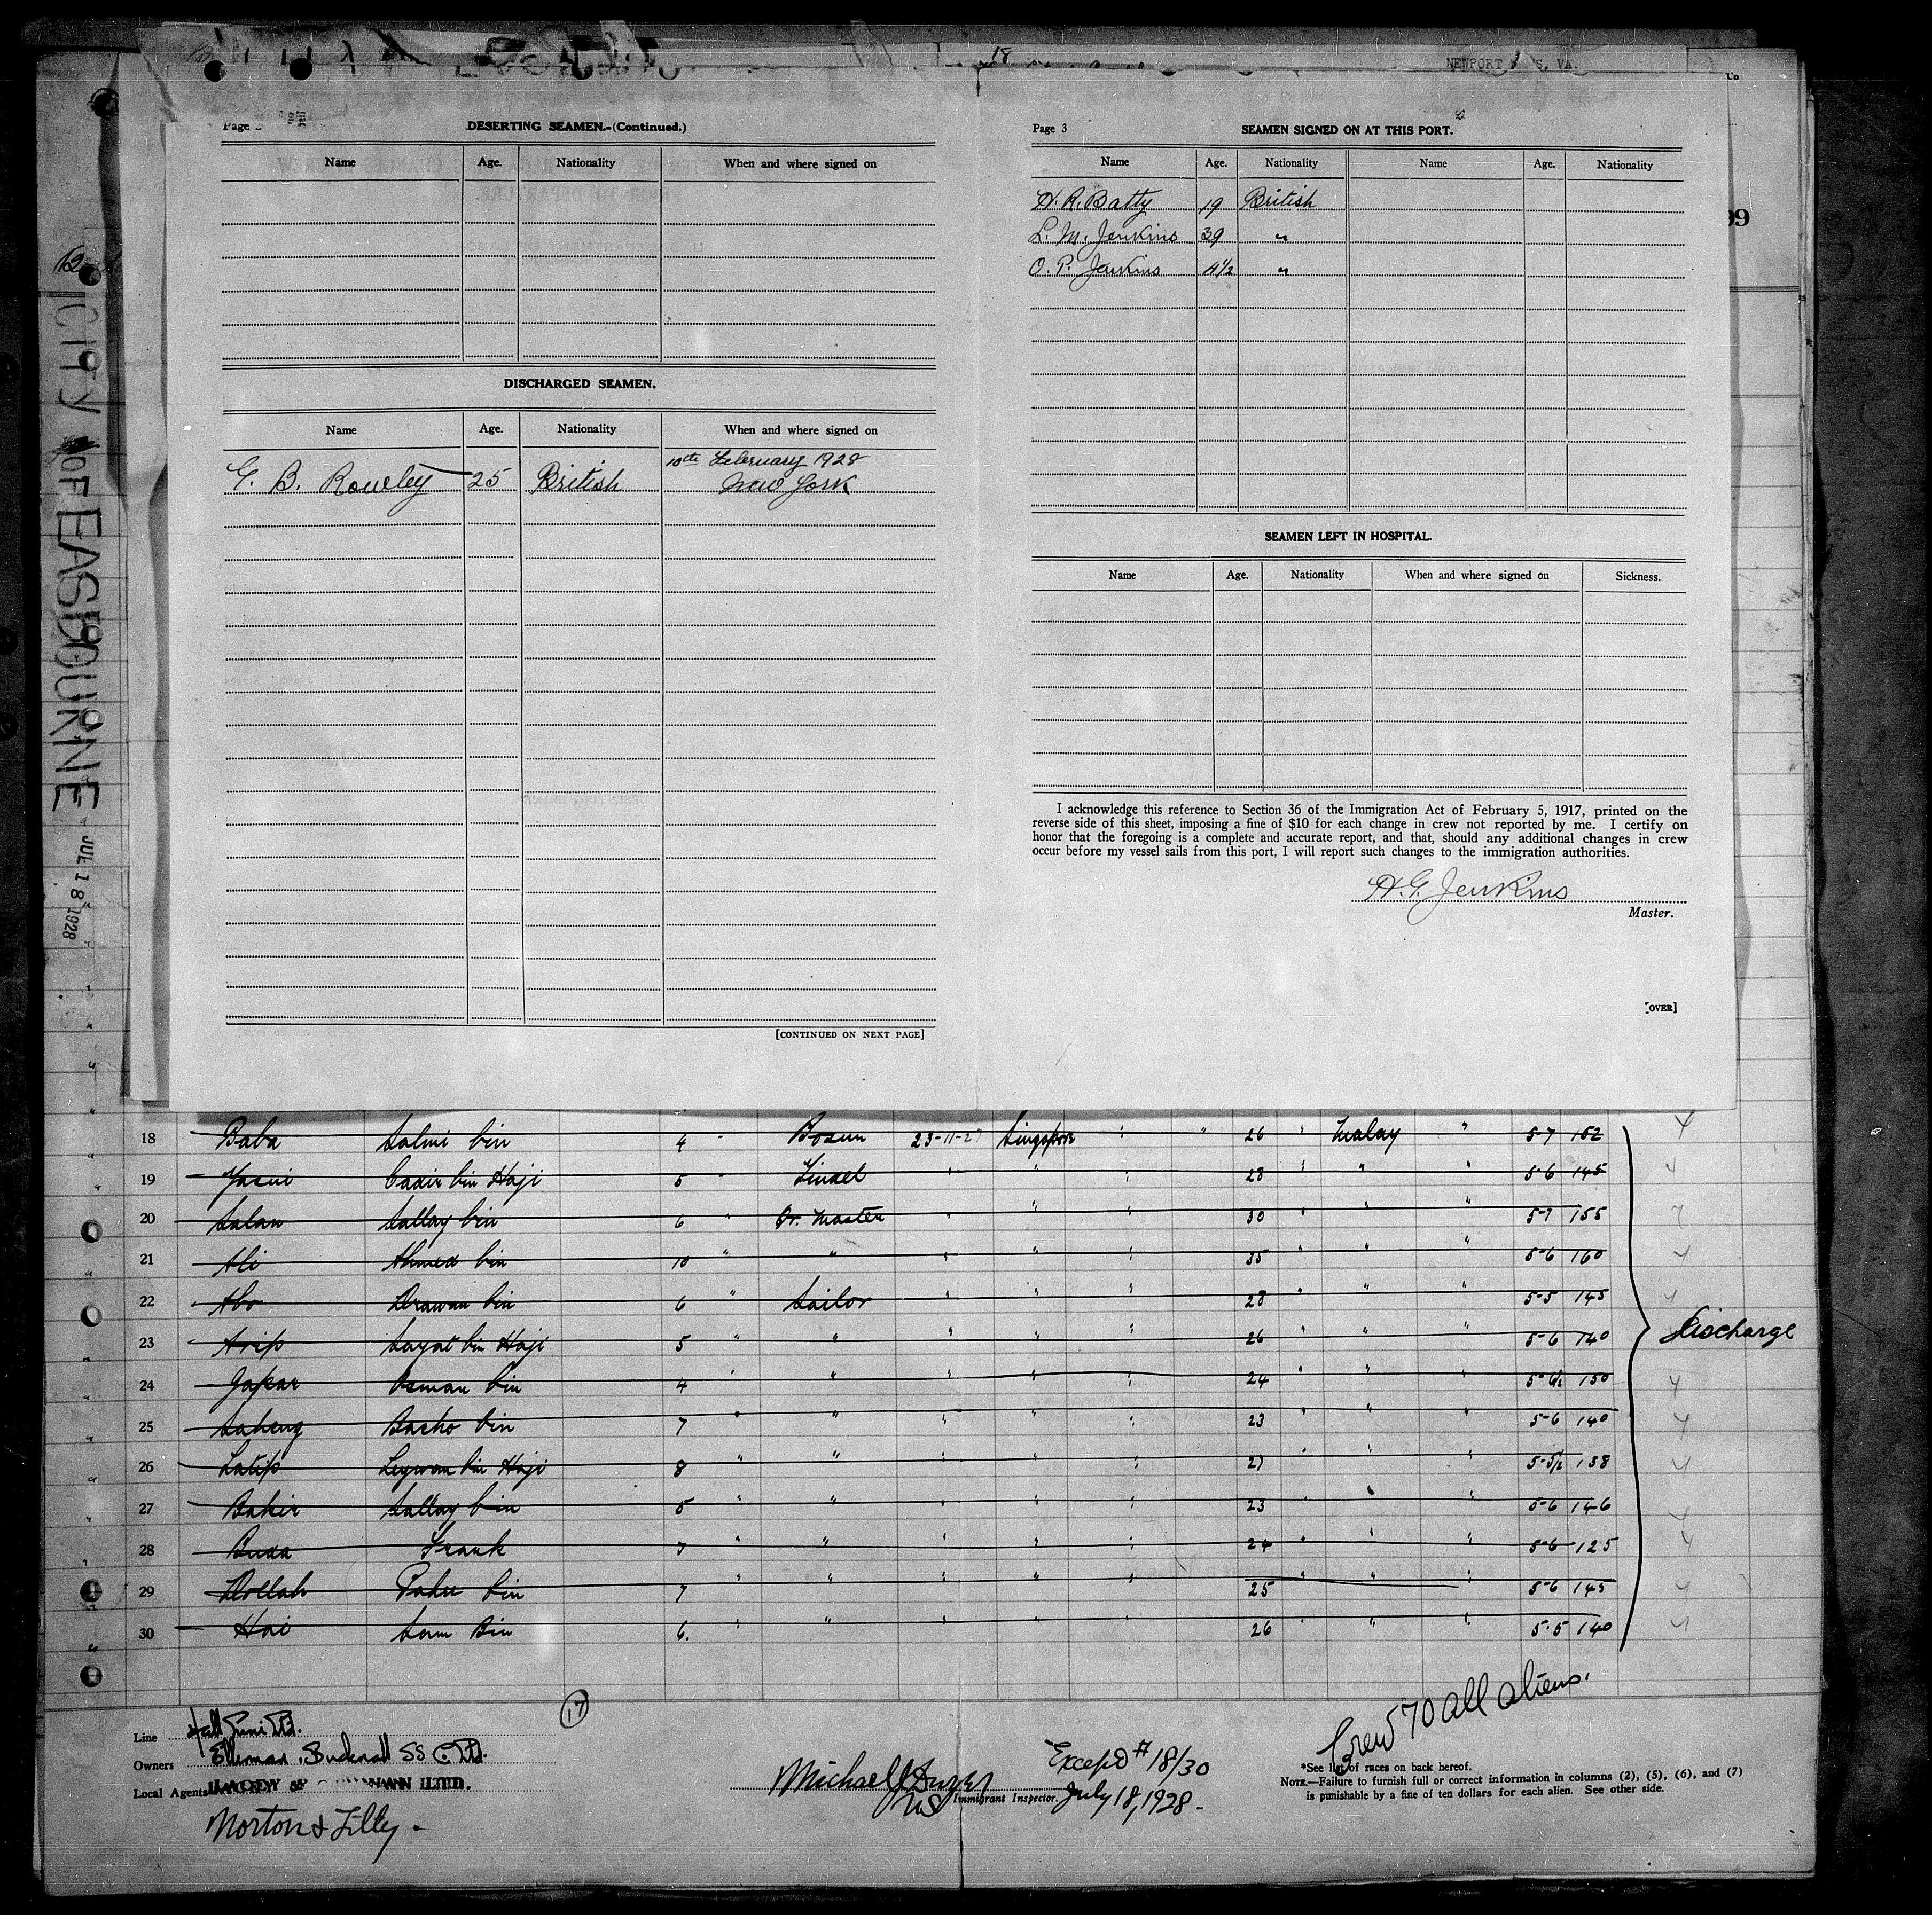 18
NEWPORT
S, VA.
Co
99
12
CITY OF EASTBOURNE
JUL 18 1928
Page
DESERTING SEAMEN.-(Continued.)
Name Age. Nationality When and where signed on
DISCHARGED SEAMEN.
Name Age. Nationality When and where signed on
G. B. Rowley 25 British 10th February 1928
New York
[CONTINUED ON NEXT PAGE]
Page 3 SEAMEN SIGNED ON AT THIS PORT.
Name Age. Nationality Name Age. Nationality
H. R. Batty 19 British
L. M. Jenkins 39 "
O. P. Jenkins 4½ "
SEAMEN LEFT IN HOSPITAL.
Name Age. Nationality When and where signed on Sickness.
I acknowledge this reference to Section 36 of the Immigration Act of February 5, 1917, printed on the
reverse side of this sheet, imposing a fine of $10 for each change in crew not reported by me. I certify on
honor that the foregoing is a complete and accurate report, and that, should any additional changes in crew
occur before my vessel sails from this port, I will report such changes to the immigration authorities.
H.G. Jenkins
Master.
[OVER]
18 Baba Salmi bin 4 " Bosun 23-11-27 Singapore " " 26 " Malay " 5-7 152
19 Yasui Cadir bin Haji 5 " Tindel " " " 28 " " " 5-6 145
20 Salan Sallay bin 6 " Qr. Master " " " 30 " " " 5-7 155
21 Ali Ahmed bin 10 " " " " " 35 " " " 5-6 160
22 Abo Drawan bin 6 " Sailor " " " 28 " " " 5-5 145
23 Arip Sayat bin Haji 5 " " " " " 26 " " " 5-6 140
24 Gapar Osman bin 4 " " " " " 24 " " " 5-6½ 150
25 Saheng Bacho bin 7 " " " " " 23 " " " 5-6 140
26 Latip Leywan bin Haji 8 " " " " " 27 " " " 5-5½ 138
27 Bakir Sallay bin 5 " " " " " 23 " " " 5-6 146
28 Buda Frank 7 " " " " " 24 " " " 5-6 125
29 Dollah Pahu bin 7 " " " " " 25 " " " 5-6 145
30 Hai Sam Bin 6. " " " " " 26 " " " 5-5 140
Discharge
17
Line Hall Ltd.
Owners Ellerman & Bucknall SS Co. Ltd.
Local Agents LTD.
Norton & Lilly.
Michael
Immigrant Inspector.
Except # 18/30
July 18, 1928.
Crew 70 all aliens.
*See list of races on back hereof.
NOTE.—Failure to furnish full or correct information in columns (2), (5), (6), and (7)
is punishable by a fine of ten dollars for each alien. See other side.